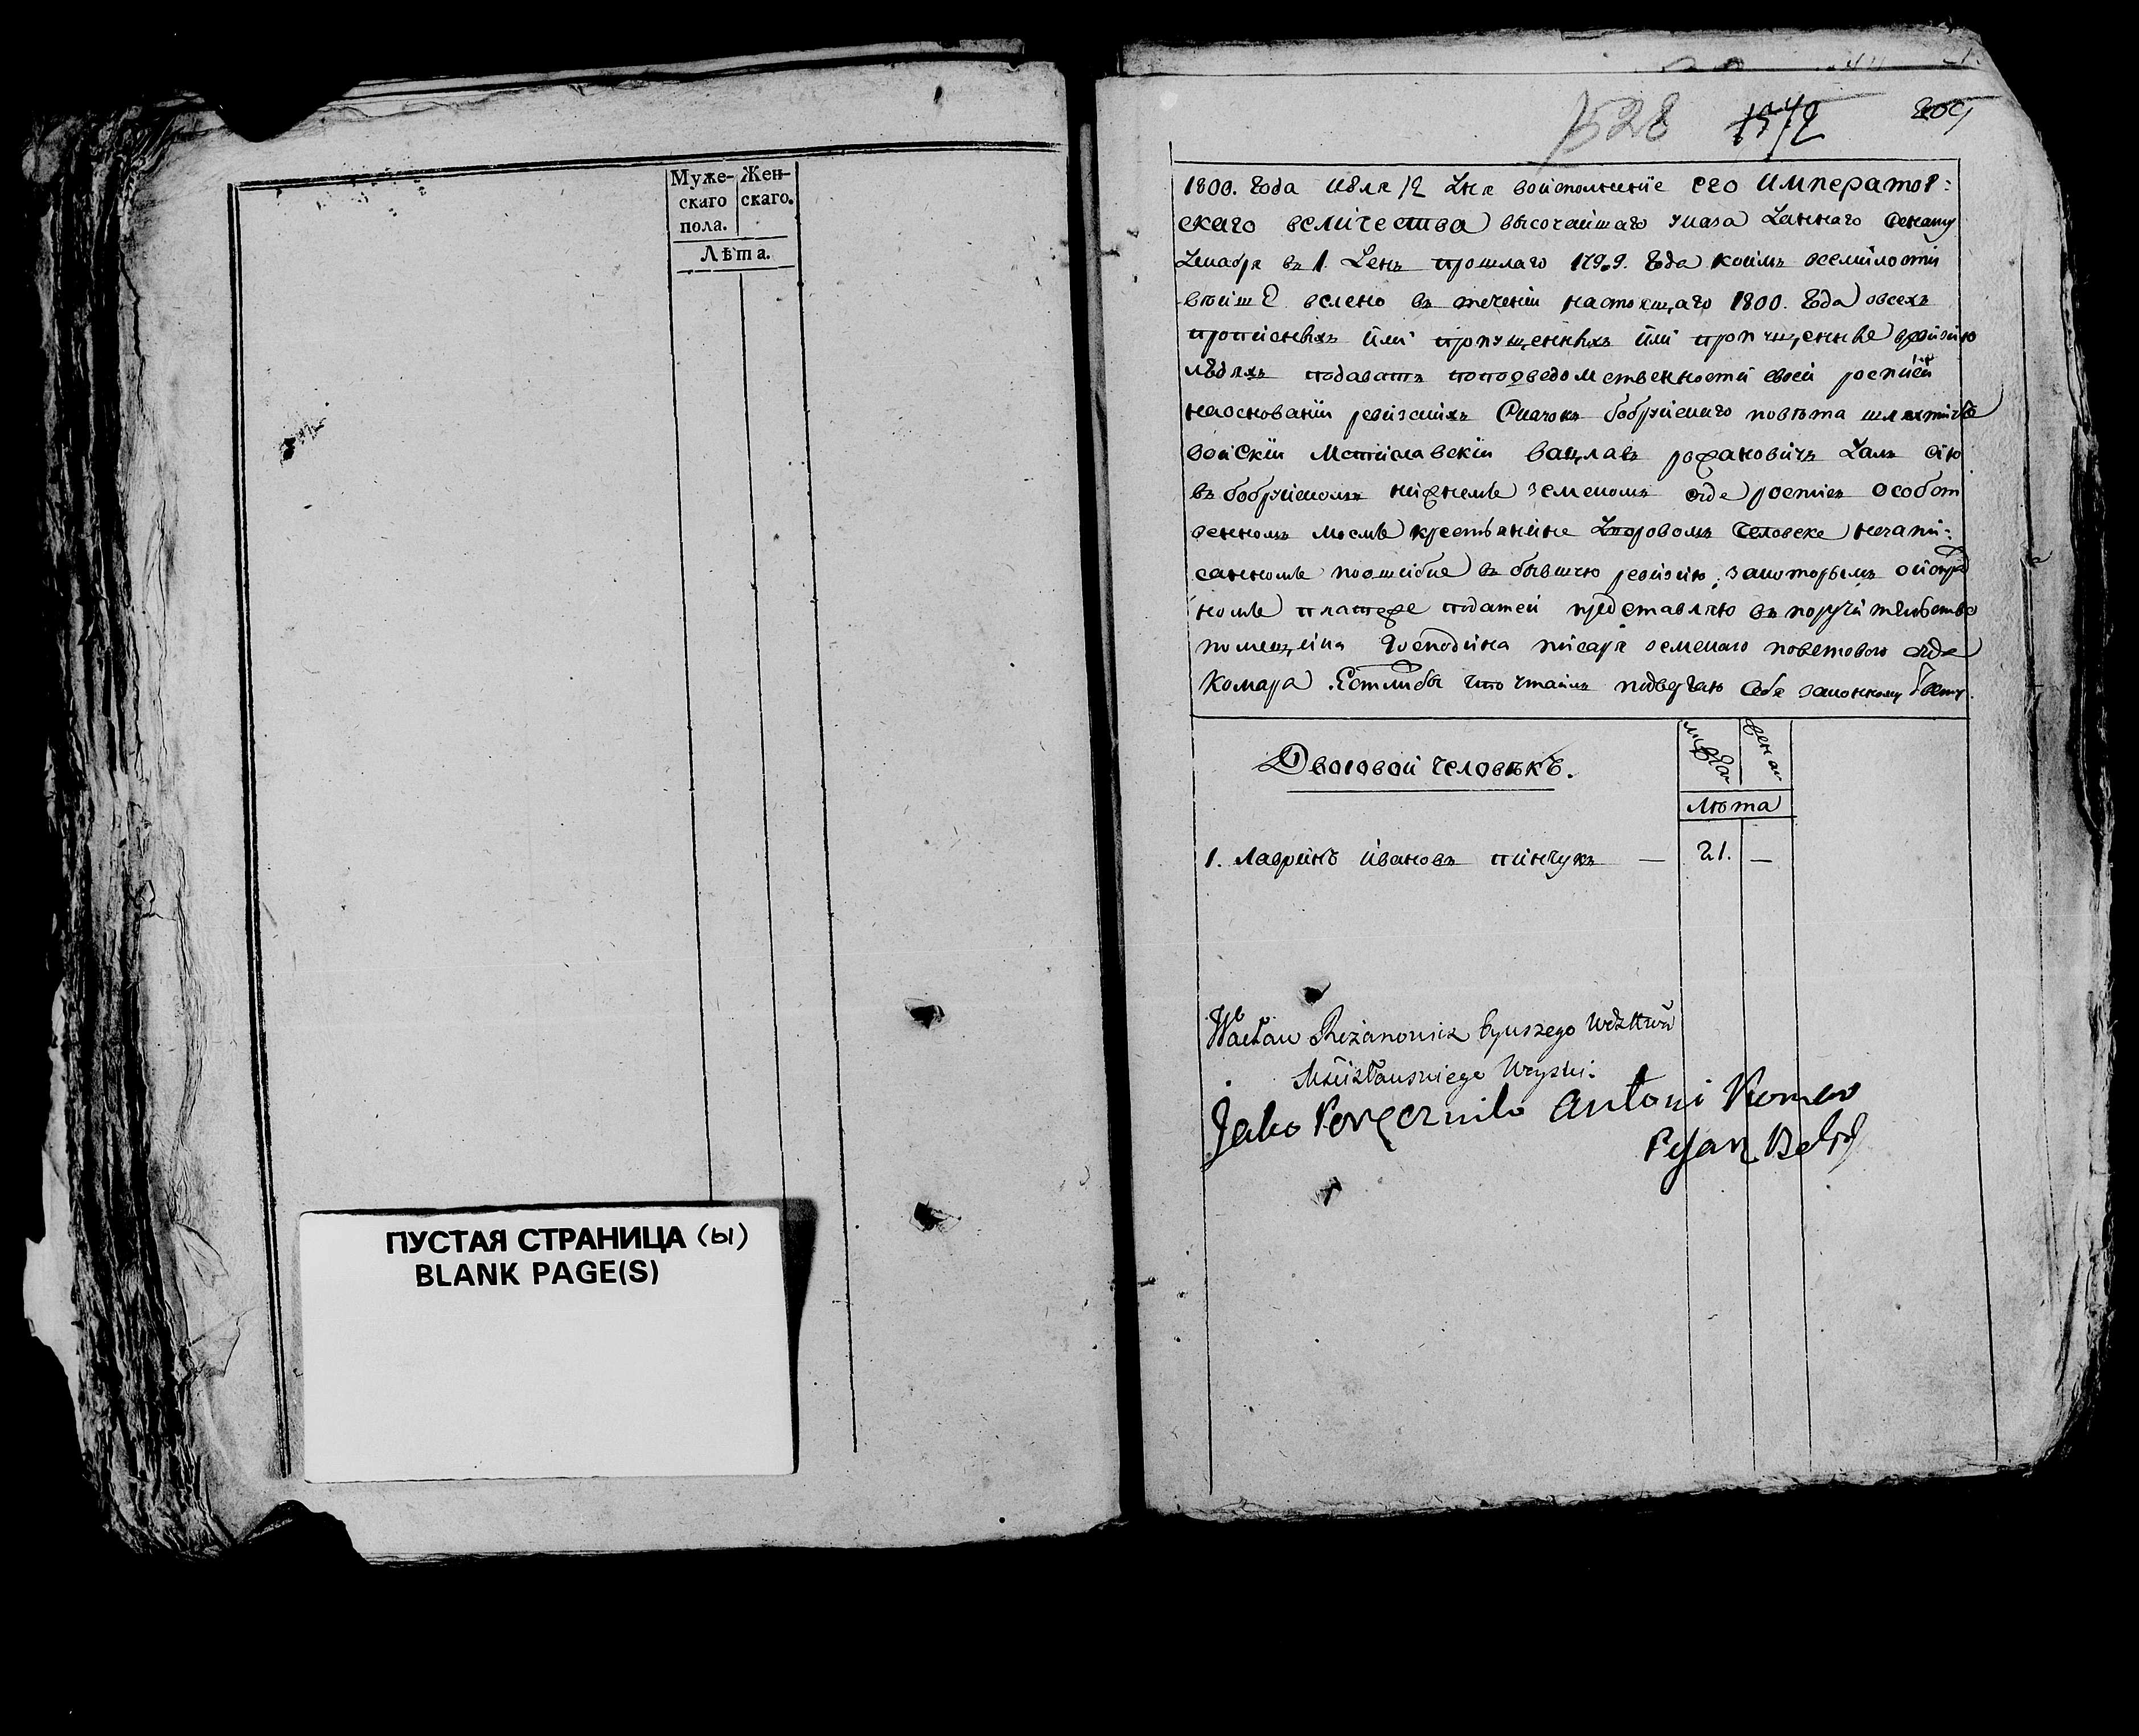 Муже- Жен-
скаго скаго.
пола.
Лѣта.
ПУСТАЯ СТРАНИЦА (ы)
BLANK PAGE(S)
528 1572
1800. Года Июля 12 дня воисполнение его Император:
скаго величества высочаишаго указа даннаго Сенату
декабря въ 1. день прошлаго 1799. Года коимъ всемилости
вѣише велено въ течении настоящаго 1800. Года овсехъ
прописныхъ или пропущенныхъ или
людяхъ подавать поподведомственности своеи росписи
наосновании ревизскихъ Сказокъ бобруискаго повѣта шляхтичь
воискии Мстиславскии вацлавъ рожановичъ далъ сию
въ бобруискомъ нижнемъ земскомъ суде роспись особст
венномъ моемъ крестьянине дворовомъ человеке незапи:
санномъ поошибке въ бывшую ревизию, закоторымъ
номъ платеже податеи представляю въ поручительство
помещика Господина писаря земскаго поветоваго суда
Комара. Естлибы что утаилъ подвергаю себя законному
Дворовой человѣкъ.
лѣта
1. Лавринъ ивановъ пинчукъ — 21. —
Wacław Reżanowicz byuszego
Mścisławskiego Woyski.
Jako Poręcznik Antoni Komar
Pisarz